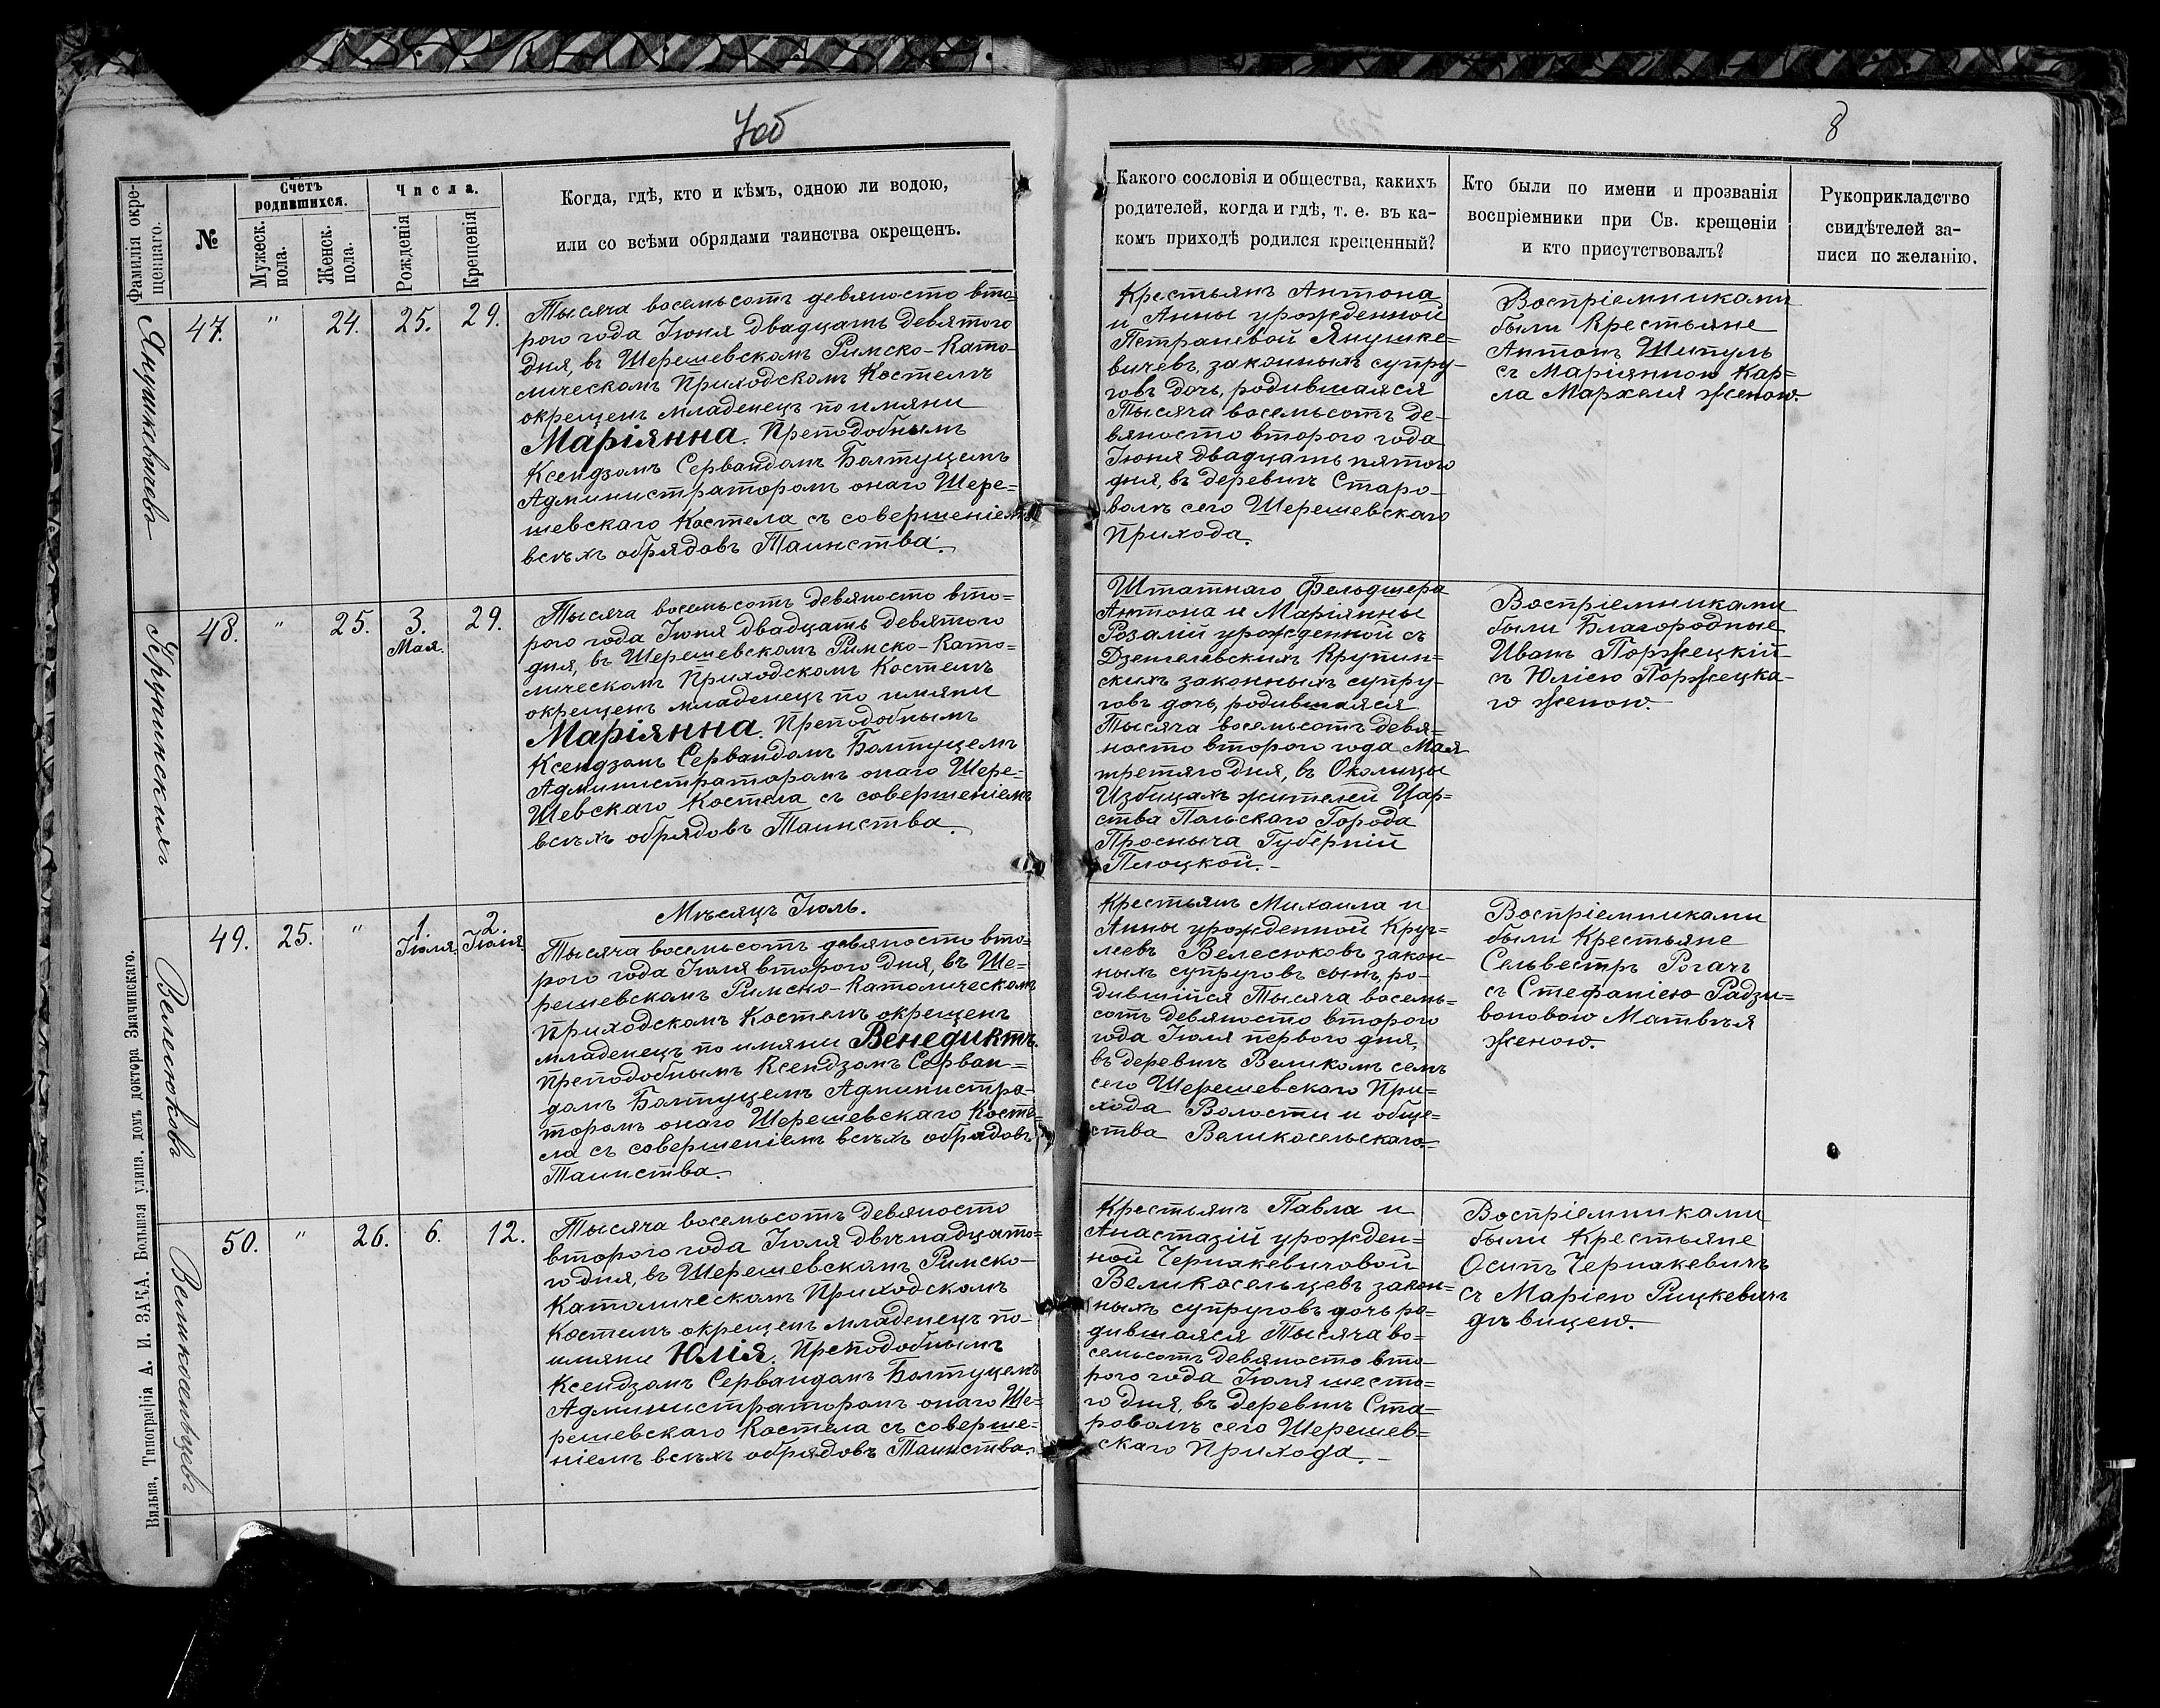 7об
8
Фамилія окре-
щеннаго.
№
Счетъ
родившихся.
Мужеск.
пола.
Женск.
пола.
Числа.
Рожденія
Крещенія
Когда, гдѣ, кто и кѣмъ, одною ли водою,
или со всѣми обрядами таинства окрещенъ.
Какого сословія и общества, какихъ
родителей, когда и гдѣ, т. е. въ ка-
комъ приходѣ родился крещенный?
Кто были по имени и прозванія
воспріемники при Св. крещеніи
и кто присутствовалъ?
Рукоприкладство
свидѣтелей за-
писи по желанію.
Янушкевичевъ
47. " 24. 25. 29.
Тысяча восемьсотъ девяносто вто=
рого года Іюня двадцать девятого
дня, въ Шерешевскомъ Римско-Като-
лическомъ Приходскомъ Костелѣ
окрещенъ младенецъ по имяни
Маріянна. Преподобнымъ
Ксендзомъ Сервандомъ Балтуцемъ
Администраторомъ онаго Шере=
шевскаго Костела съ совершеніемъ
всѣхъ обрядовъ Таинства.
Крестьянъ Антона
и Анны урожденной
Петраневой Янушке=
вичевъ, законныхъ супру-
говъ дочь, родившаяся
Тысяча восемьсотъ де-
вяносто второго года
Іюня двадцать пятого
дня, въ деревнѣ Старо-
волѣ сего Шерешевскаго
Прихода.
Воспріемниками
были Крестьяне
Антонъ Шипуль
съ Маріянною Кар=
ла Мархеля женою.
Крупинскихъ
48. " 25. 3. 29.
Мая.
Тысяча восемьсотъ девяносто вто=
рого года Іюня двадцать девятого
дня, въ Шерешевскомъ Римско-Като=
лическомъ Приходскомъ Костелѣ
окрещенъ младенецъ по имяни
Маріянна. Преподобнымъ
Ксендзомъ Сервандомъ Балтуцемъ
Администраторомъ онаго Шере=
Шевскаго Костела съ совершеніемъ
всѣхъ обрядовъ Таинства.
Штатнаго Фельдшера
Антона и Маріянны
Розаліи урожденной съ
Дзенгелевскихъ Крупин=
скихъ законныхъ супру-
говъ дочь, родившаяся
Тысяча восемьсотъ девя=
носто второго года Мая
третяго дня, въ Околицы
Избицахъ жителей Цар=
ства Польскаго Города
Просныча Губерніи
Плоцкой.-
Воспріемниками
были Благородные
Иванъ Поржецкій
съ Юліею Поржецка-
го женою.
Велесюковъ
49. 25. " 1. 2.
Іюля. Іюля.
Мѣсяцъ Іюль.
Тысяча восемьсотъ девяносто вто=
рого года Іюля второго дня, въ Ше=
решевскомъ Римско-Католическомъ
Приходскомъ Костелѣ окрещенъ
младенецъ по имяни Венедиктъ.
Преподобнымъ Ксендзомъ Серван=
домъ Балтуцемъ Администра-
торомъ онаго Шерешевскаго Косте=
ла съ совершеніемъ всѣхъ обрядовъ
Таинства.
Крестьянъ Михаила и
Анны урожденной Круг=
леевъ Велесюковъ закон-
ныхъ супруговъ сынъ, ро-
дившійся Тысяча восемь=
сотъ девяносто второго
года Іюля первого дня,
въ деревнѣ Великомъ селѣ
сего Шерешевскаго При=
хода Волости и обще=
ства Великосельскаго.-
Воспріемниками
были Крестьяне
Сельвестръ Рогачъ
съ Стефаніею Радзи=
воновою Матвѣя
женою.
Великосельцевъ
50. " 26. 6. 12.
Тысяча восемьсотъ девяносто
второго года Іюля двѣнадцато=
го дня, въ Шерешевскомъ Римско-
Католическомъ Приходскомъ
Костелѣ окрещенъ младенецъ по-
имяни Юлія. Преподобнымъ
Ксендзомъ Сервандомъ Балтуцемъ
Администраторомъ онаго Ше=
решевскаго Костела съ соверше=
ніемъ всѣхъ обрядовъ Таинства.
Крестьянъ Павла и
Анастазіи урожден=
ной Чернакевичовой
Великосельцевъ закон=
ныхъ супруговъ дочь ро=
дившаяся Тысяча во=
семьсотъ девяносто вто-
рого года Іюля шесто=
го дня, въ деревнѣ Ста=
роволѣ сего Шерешев=
скаго Прихода.-
Воспріемниками
были Крестьяне
Осипъ Чернакевичъ
съ Маріею Рицкевичъ
дѣвицею.
Вильна, Типографія А. И. ЗАКА. Большая улица, домъ доктора Значинскаго.